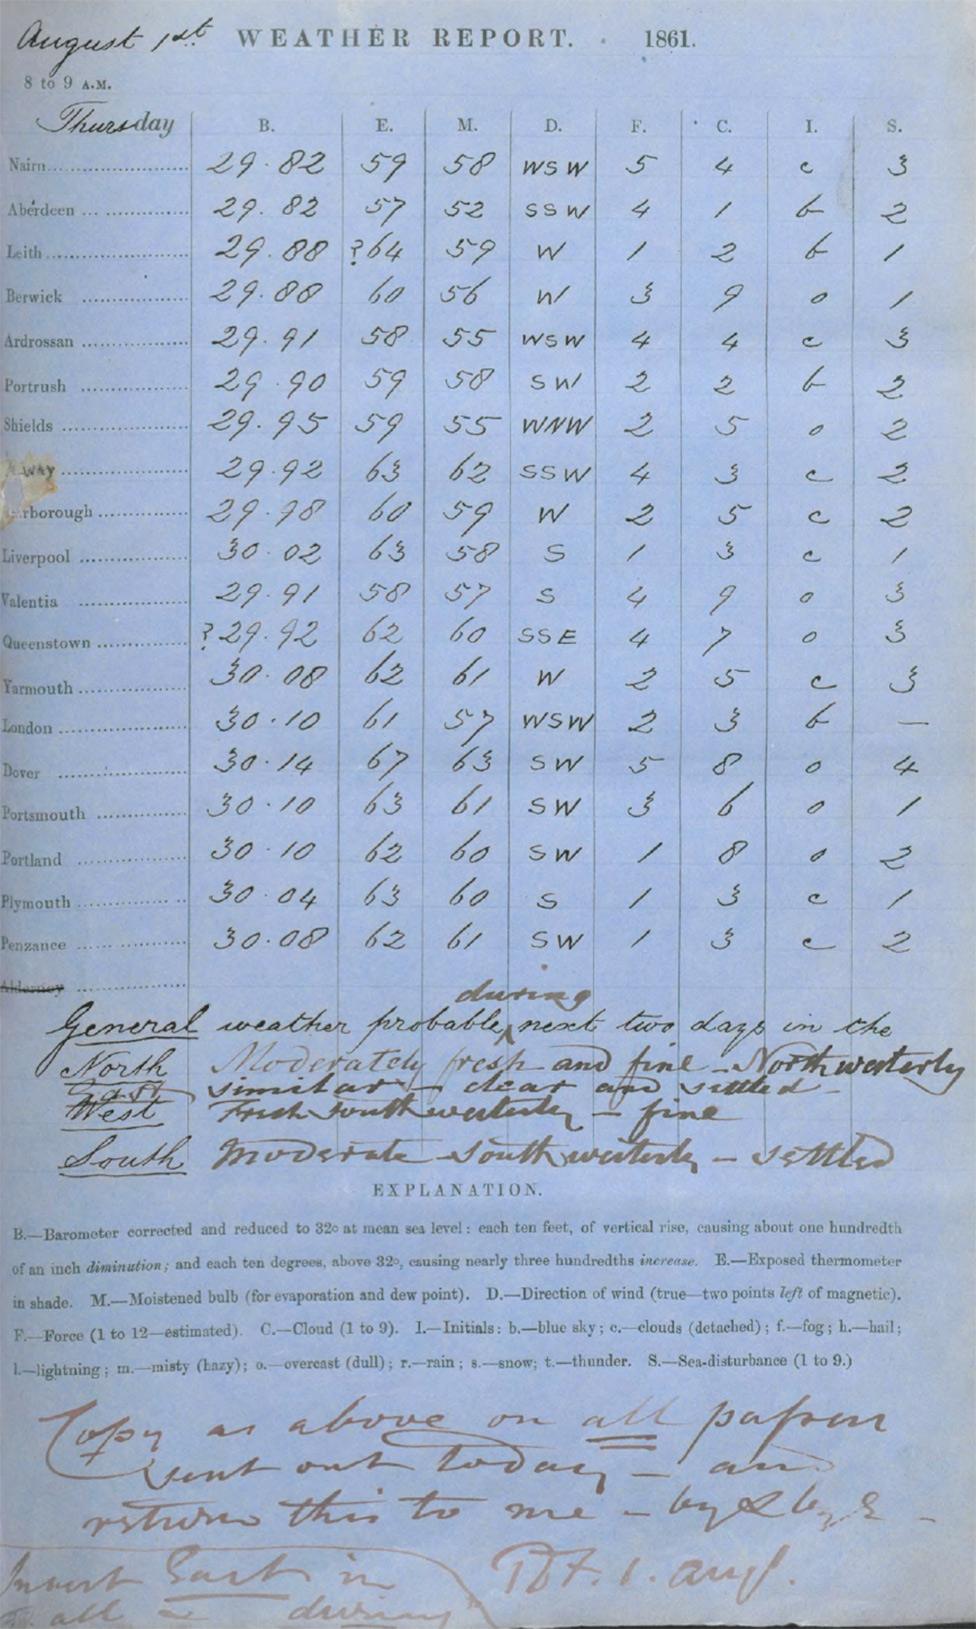 August 1st WEATHER REPORT. 1861.
8 to 9 A.M.
Thursday B. E. M. D. F. C. I. S.
Nairn 29.82 59 58 WSW 5 4 c 3
Aberdeen 29.82 57 52 SSW 4 1 b 2
Leith 29.88 ?64 59 W 1 2 b 1
Berwick 29.88 60 56 W 3 9 o 1
Ardrossan 29.91 58 55 WSW 4 4 c 3
Portrush 29.90 59 58 SW 2 2 b 2
Shields 29.95 59 55 WNW 2 5 o 2
way 29.92 63 62 SSW 4 3 c 2
rborough 29.98 60 59 W 2 5 c 2
Liverpool 30.02 63 58 S 1 3 c 1
Valentia 29.91 58 57 S 4 9 o 3
Queenstown ?29.92 62 60 SSE 4 7 o 3
Yarmouth 30.08 62 61 W 2 5 c 3
London 30.10 61 57 WSW 2 3 b —
Dover 30.14 67 63 SW 5 8 o 4
Portsmouth 30.10 63 61 SW 3 6 o 1
Portland 30.10 62 60 SW 1 8 o 2
Plymouth 30.04 63 60 S 1 3 c 1
Penzance 30.08 62 61 SW 1 3 c 2
Alderney
during
General weather probable next two days in the
North Moderately fresh and fine - Northwesterly
East similar - clear and settled -
West Fresh southwesterly - fine
South Moderate southwesterly - settled
EXPLANATION.
B.—Barometer corrected and reduced to 32° at mean sea level: each ten feet, of vertical rise, causing about one hundredth
of an inch diminution; and each ten degrees, above 32°, causing nearly three hundredths increase. E.—Exposed thermometer
in shade. M.—Moistened bulb (for evaporation and dew point). D.—Direction of wind (true—two points left of magnetic).
F.—Force (1 to 12—estimated). C.—Cloud (1 to 9). I.—Initials: b.—blue sky; c.—clouds (detached); f.—fog; h.—hail;
l.—lightning; m.—misty (hazy); o.—overcast (dull); r.—rain; s.—snow; t.—thunder. S.—Sea-disturbance (1 to 9.)
Copy as above on all papers
sent out today - and
return this to me - by & bye -
Insert East in RF. 1. Aug.
all during